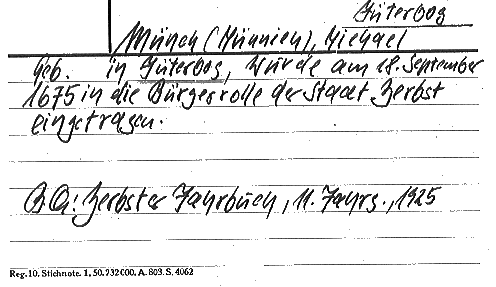 Jüterbog
Münch (Münnich), Michael
Geb. in Jüterbog, wurde am 28. September
1675 in die Bürgerrolle der Stadt Zerbst
eingetragen.
B.Qu: Zerbster Jahrbuch, 11. Jahrg., 1925
Reg. 10. Stichnote. 1, 50. 732 000. A. 803. S. 4062